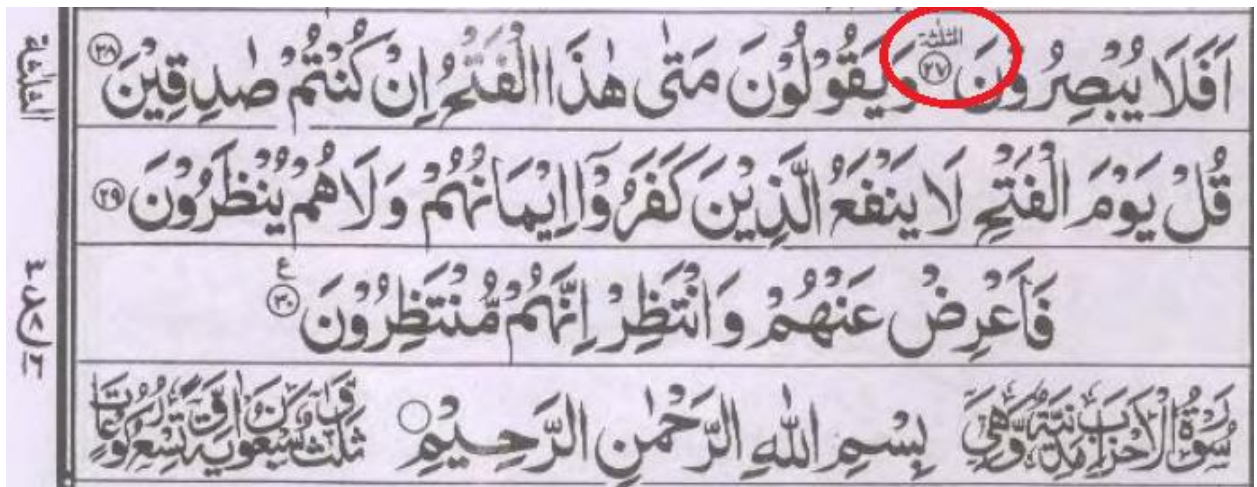 اَفَلَا يُبْصِرُوْنَ الثلثة ٢٧ وَيَقُوْلُوْنَ مَتٰى هٰذَا الْفَتْحُ اِنْ كُنْتُمْ صٰدِقِيْنَ ٢٨ الثلثة
قُلْ يَوْمَ الْفَتْحِ لَا يَنْفَعُ الَّذِيْنَ كَفَرُوْۤا اِيْمَانُهُمْ وَلَا هُمْ يُنْظَرُوْنَ ٢٩
فَاَعْرِضْ عَنْهُمْ وَانْتَظِرْ اِنَّهُمْ مُّنْتَظِرُوْنَ ع ٣٠
سُوْرَةُ الْاَحْزَابِ مَدَنِيَّةٌ وَّهِيَ بِسْمِ اللّٰهِ الرَّحْمٰنِ الرَّحِيْمِ ثَلٰثٌ وَّسَبْعُوْنَ اٰيَةً وَّتِسْعُ رُكُوْعَاتٍ